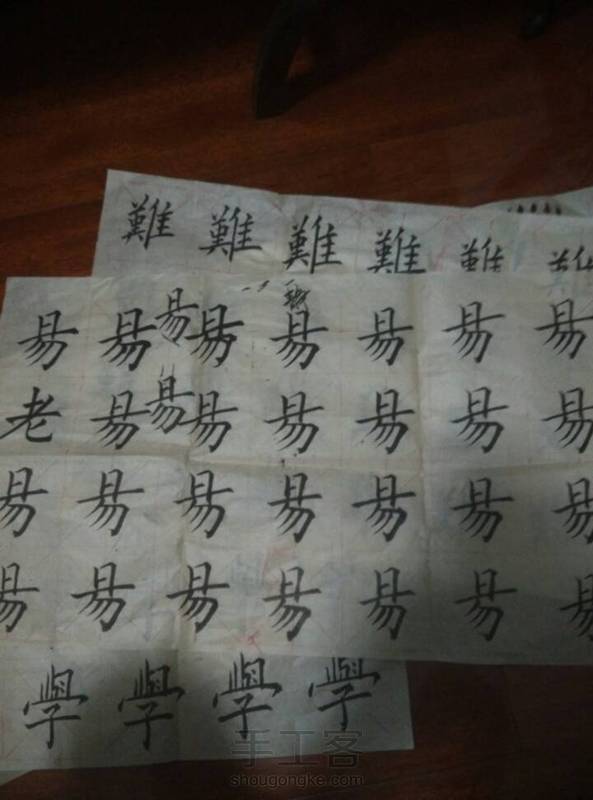 難難難難難難
易易易易易易易易
老易易易易易易易
易易易易易易易
易易易易易易易
學學學學
手工客
shougongke.com